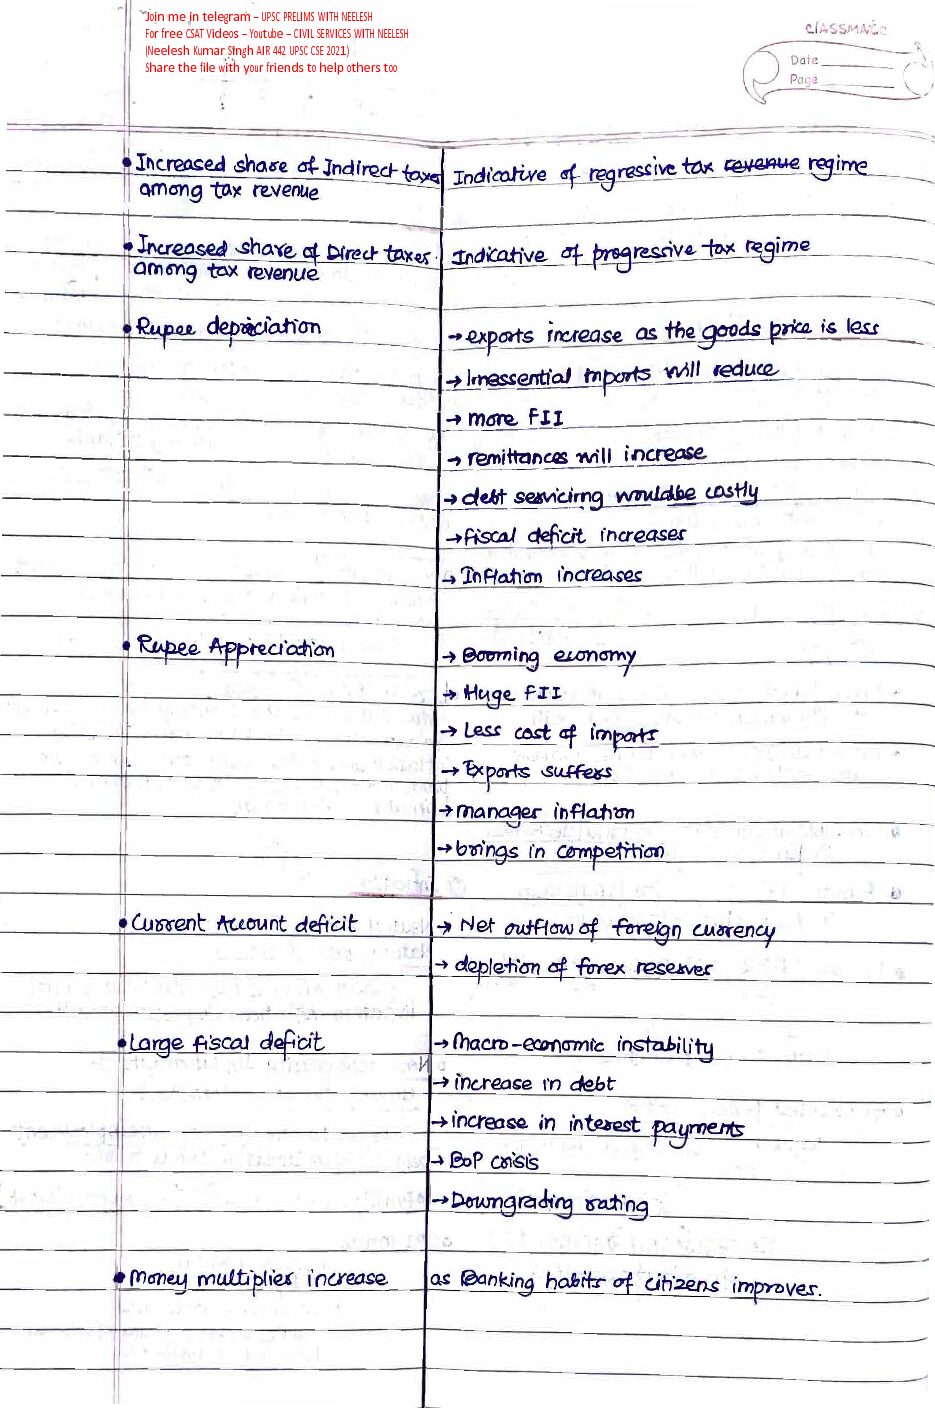 Join me in telegram – UPSC PRELIMS WITH NEELESH
For free CSAT Videos – Youtube – CIVIL SERVICES WITH NEELESH
(Neelesh Kumar Singh AIR 442 UPSC CSE 2021)
Share the file with your friends to help others too
CLASSMATE
Date
Page
• Increased share of Indirect taxes
among tax revenue
Indicative of regressive tax revenue regime
• Increased share of Direct taxes.
among tax revenue
Indicative of progressive tax regime
• Rupee depriciation
→ exports increase as the goods price is less
→ Imessential imports will reduce
→ more FII
→ remittances will increase
→ debt servicimg wouldbe costly
→ fiscal deficit increases
→ Inflation increases
• Rupee Appreciation
→ Booming economy
→ Huge FII
→ Less cost of imports
→ Exports suffers
→ manager inflation
→ brings in competition
• Current Account deficit
→ Net outflow of foreign currency
→ depletion of forex reserves
• Large fiscal deficit
→ Macro-economic instability
→ increase in debt
→ increase in interest payments
→ BoP crisis
→ Downgrading rating
• Money multiplier increase
as Banking habits of citizens improves.